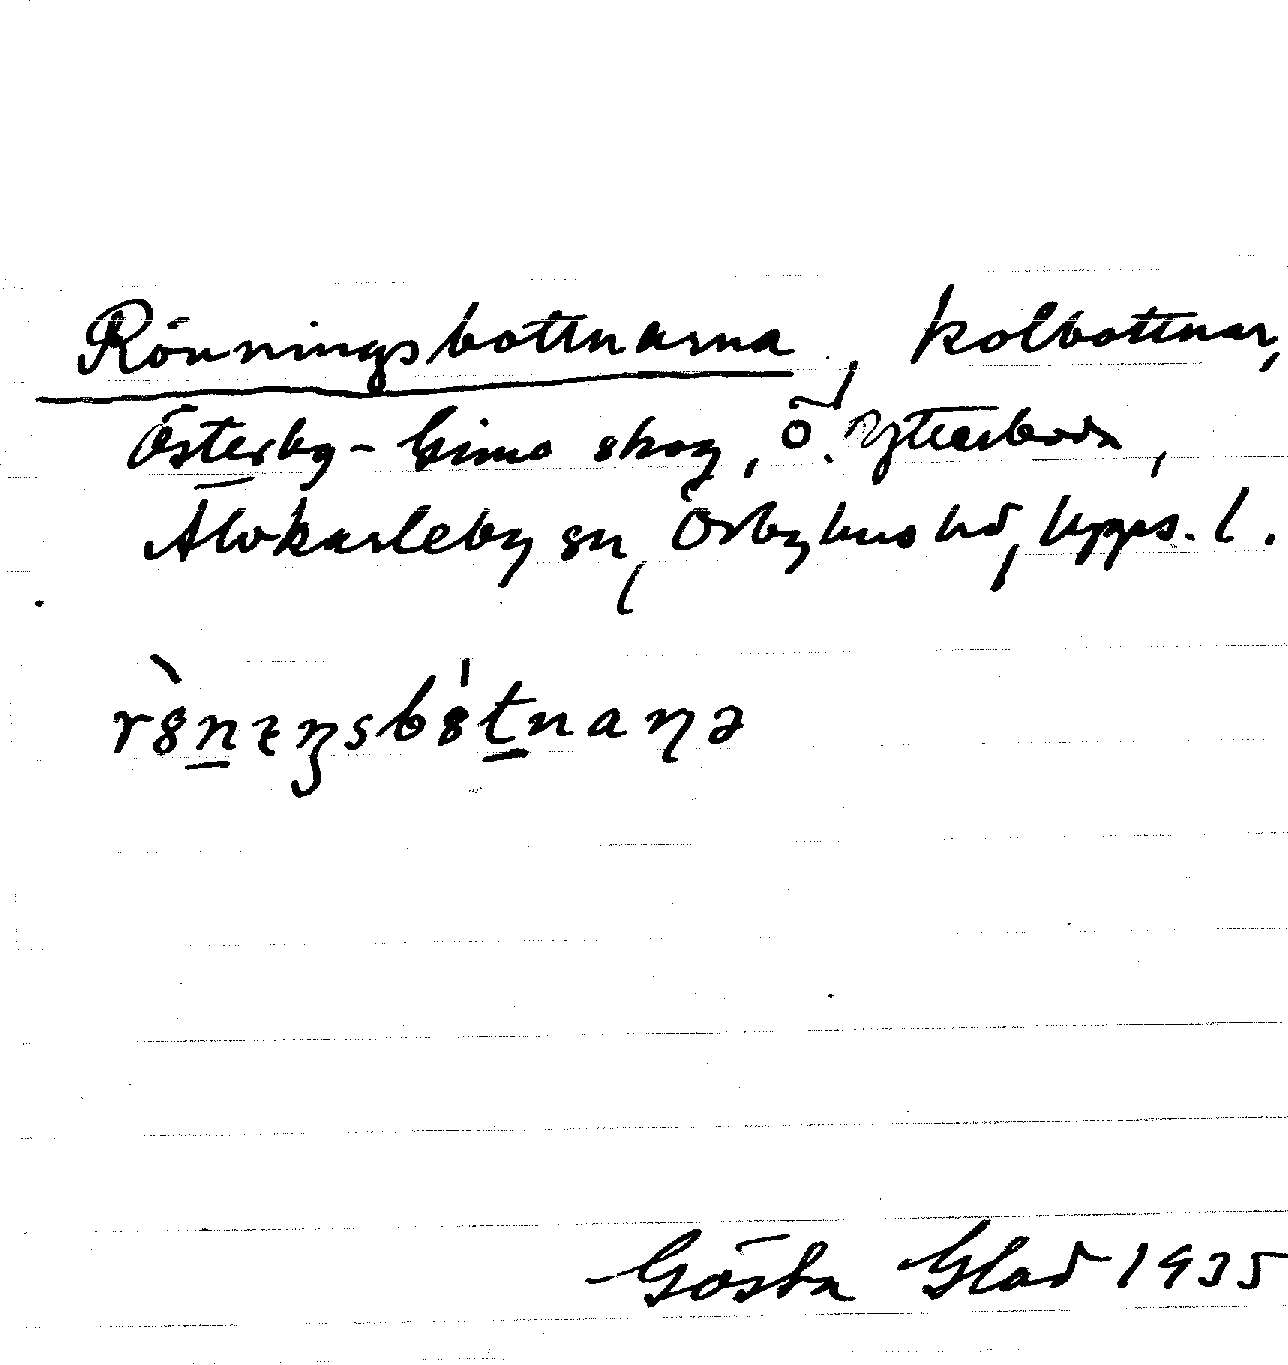 Rönningsbottnarna, kolbottnar,
Österby-Gimo skog, ö. Ytterboda,
Älvkarleby sn, Örbyhus hd, Upps. l.
Gösta Glad 1935